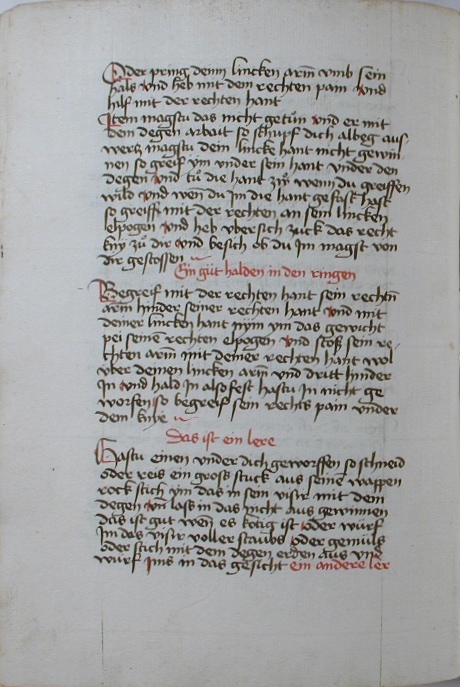 Oder pring denn lincken arm vmb sein
hals vnd heb mit dem rechten pain vnd
half mit der rechten hant
Item magstu das nicht getůn vnd er mit
dem degen arbait so schupf dich albeg aus
wertz magstu dem lincke hant nicht gewin
nen so greif ym vnder sein hant vnder den
degen vnd tů die hant zů wenn du greiffen
wild vnd wen du Jm die hant gefast hast
so greiff mit der rechten an sein lincken
elpogen vnd heb vbersich zuck das recht
kny zů dir vnd besich ob du Jm magst von
dir gestossen
Ein gůt halden in den ringen
Begreif mit der rechten hant sein rechtn
arm hinder seiner rechten hant vnd mit
deiner lincken hant nym ym das gewicht
pei seinē rechten elpogen vnd stoß sein re
chten arm mit deiner rechten hant wol
vber deinen lincken arm vnd dritt hinder
In vnd hald in also fest hastu In nicht ge
worfen so begreif sein rechts pain vnder
dem knye
das ist ein lere
Hastu einen vnder dich geworffen so schneid
oder reis ein gross stuck aus seinē wappen
rock stich ym das in sein visir mit dem
degen vn̄ lass in das nicht aus gewinnen
das ist gut wen es kotig ist oder wurf
Im das visir voller staubs oder gemüls
oder stich mit dem degen erden aus vnd
wurf ims in das gesicht ein andere ler